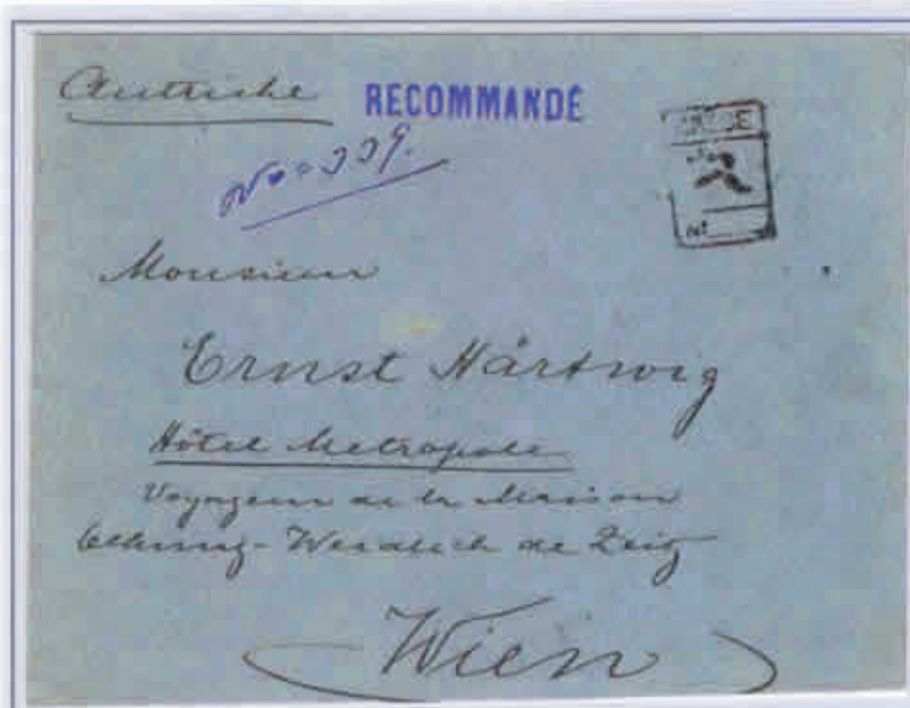 Autriche
RECOMMANDÉ
No 339.
No
Monsieur
Ernst Härtwig
Hôtel Metropole
Voyageur de la Maison
de Zeitz
Wien